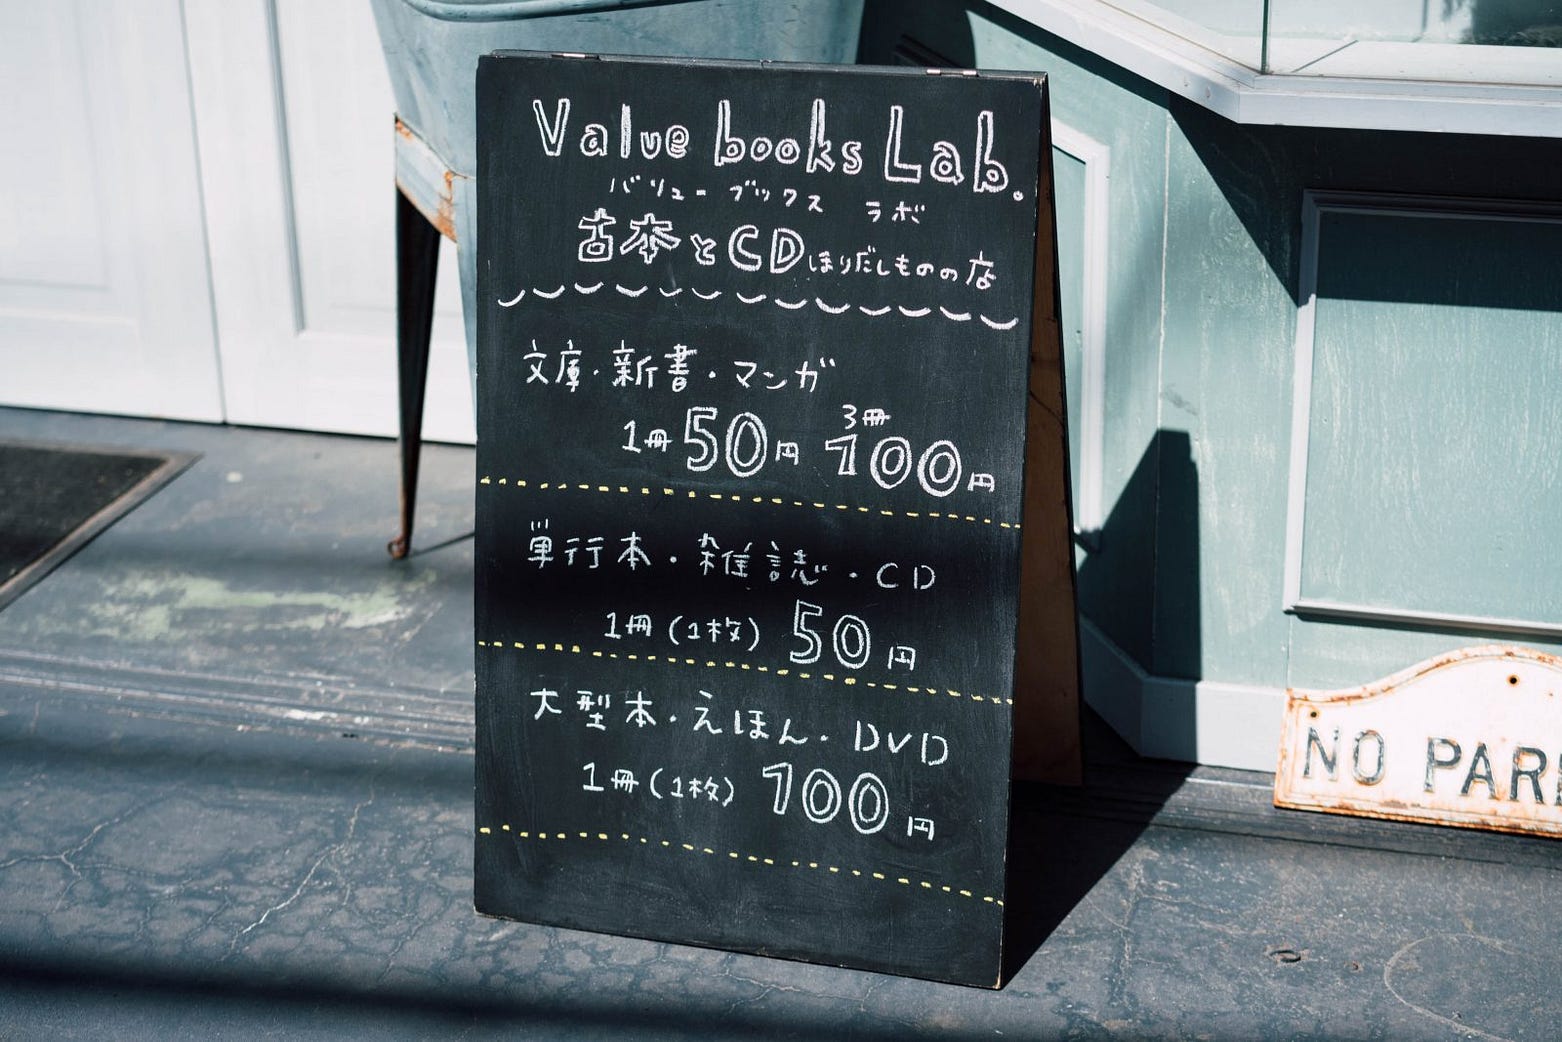 Value books Lab.
バリューブックス ラボ
古本とCDほりだしものの店
文庫・新書・マンガ
1冊50円 3冊100円
単行本・雑誌・CD
1冊(1枚) 50円
大型本・えほん・DVD
1冊(1枚) 100円
NO PAR